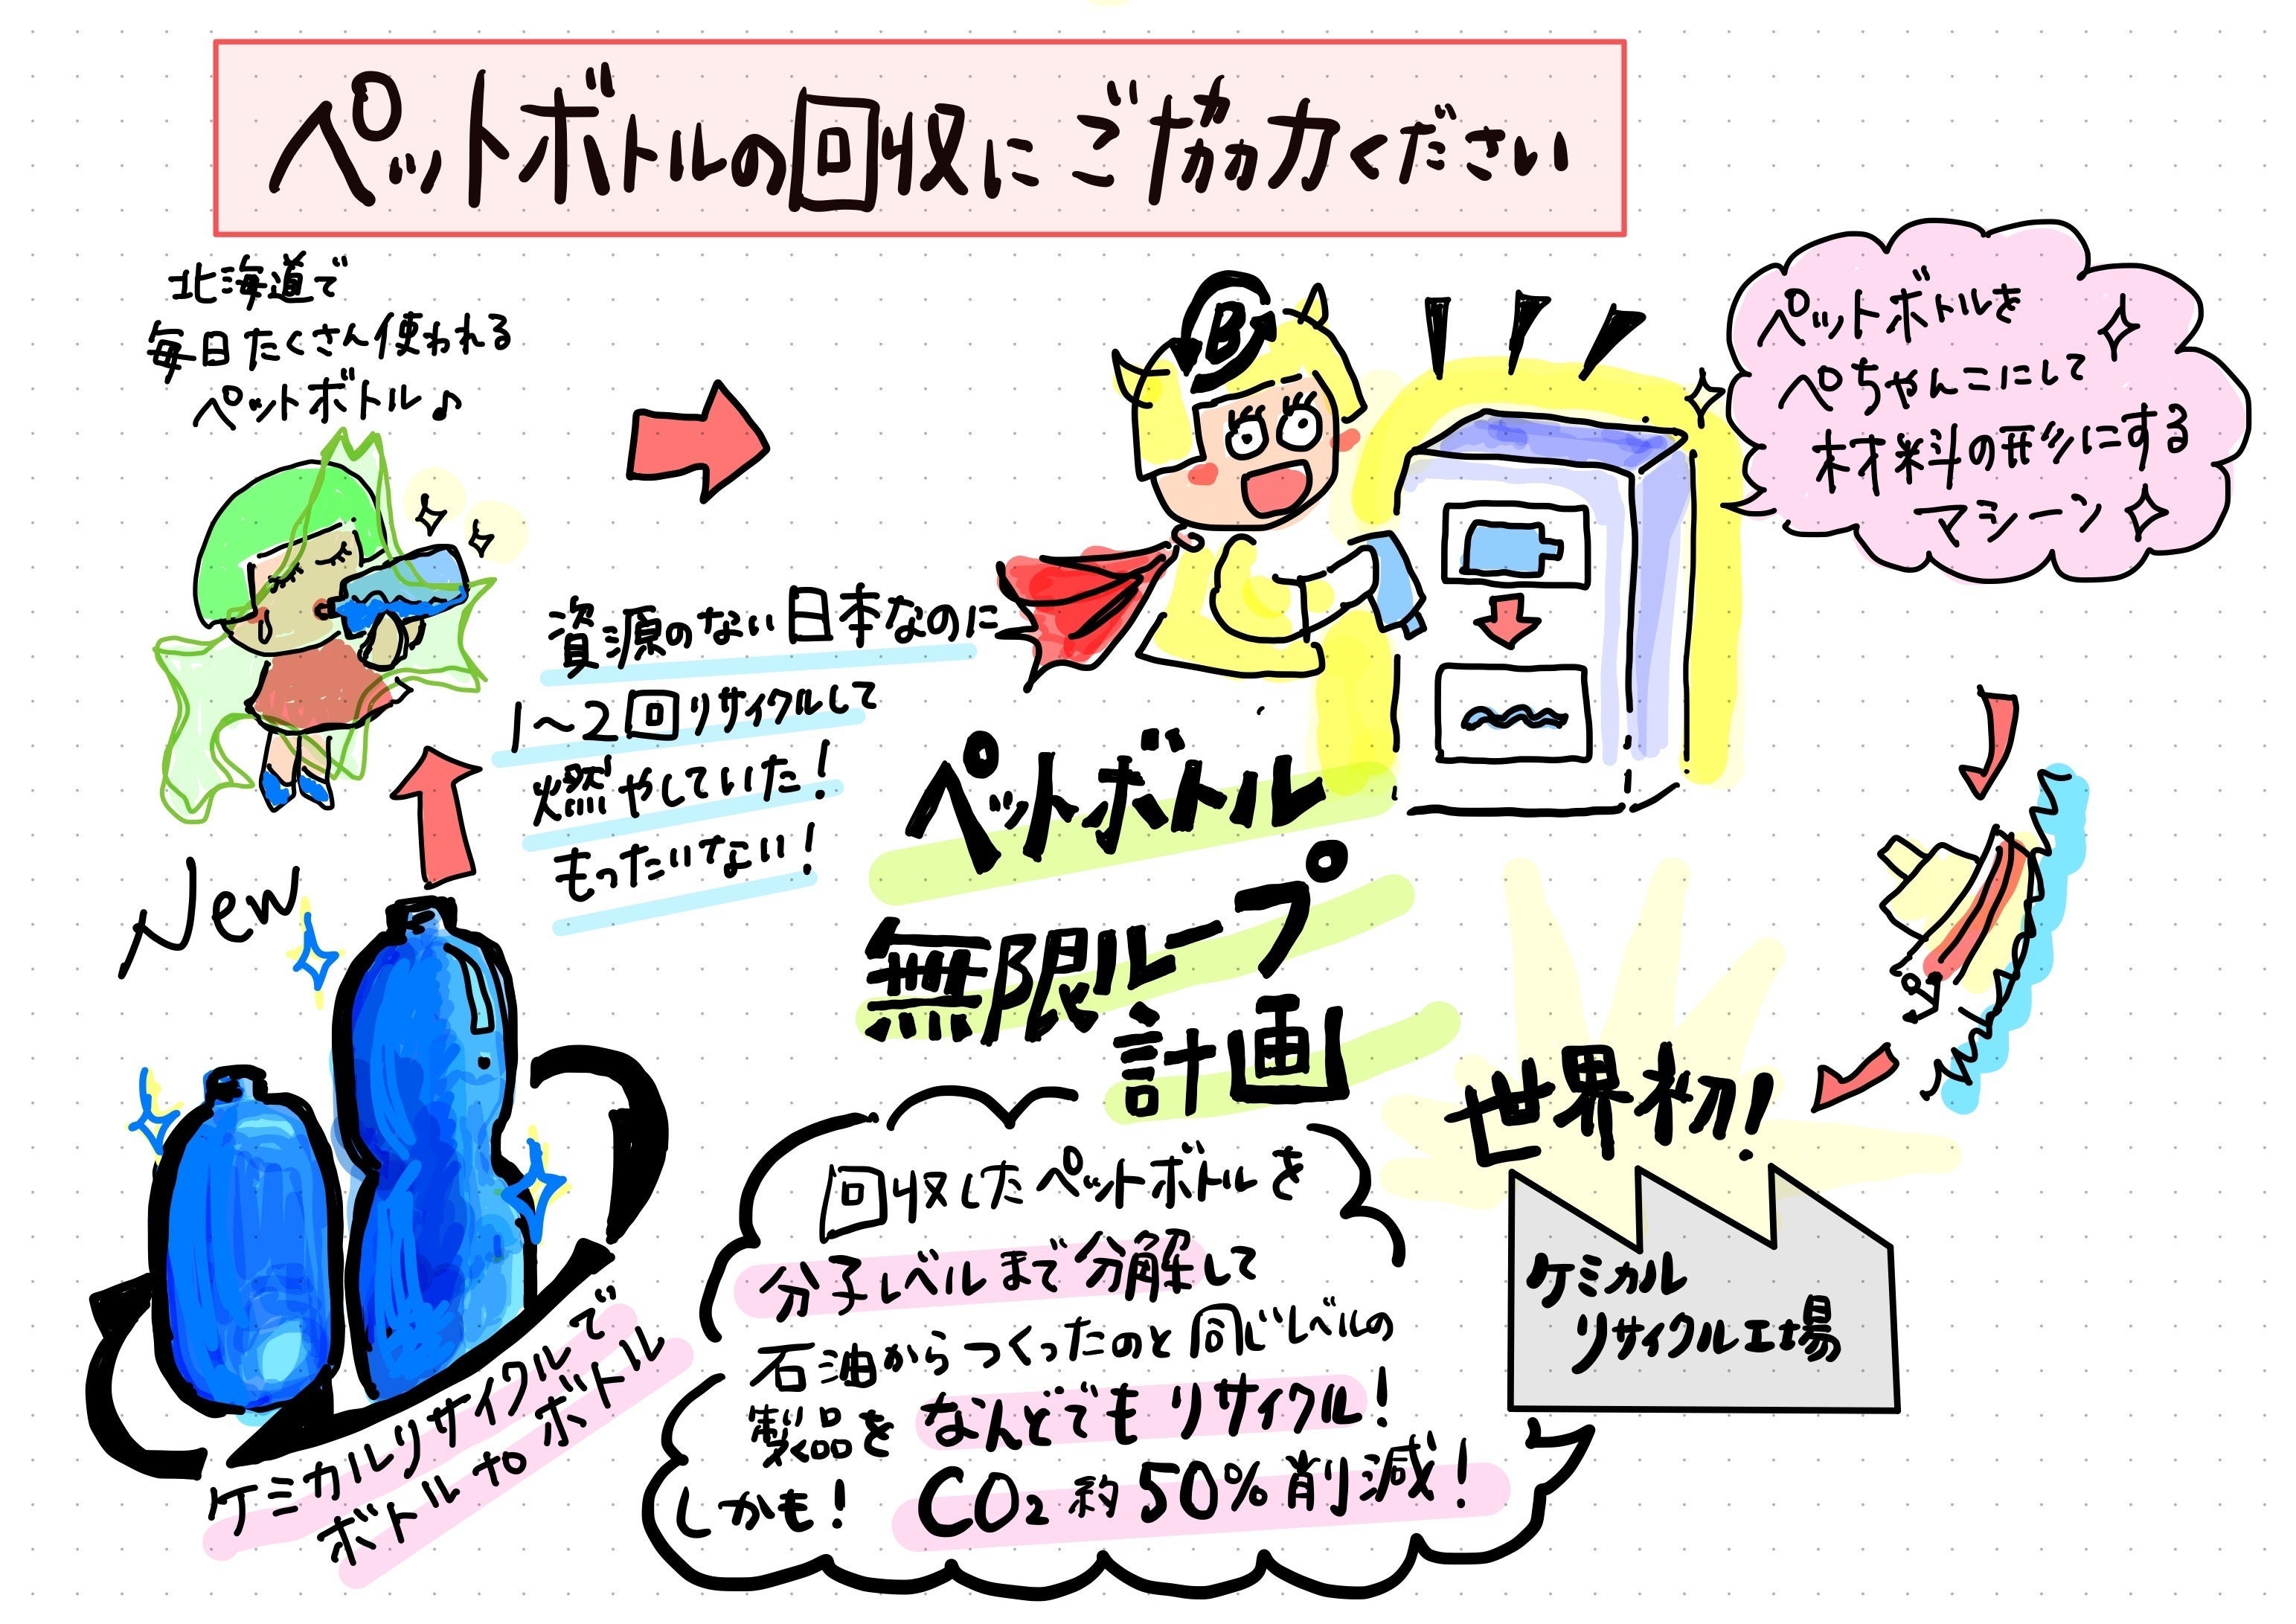 ペットボトルの回収にご協力ください
北海道で
毎日たくさん使われる
ペットボトル♪
B
ペットボトルを
ペちゃんこにして
材料の形にする
マシーン
資源のない日本なのに
1~2回リサイクルして
燃やしていた!
もったいない!
ペットボトル
無限ループ
計画
世界初!
ケミカル
リサイクル工場
回収したペットボトルを
分子レベルまで分解して
石油からつくったのと同じレベルの
製品をなんどでもリサイクル!
しかも! CO2約50%削減!
New
ケミカルリサイクルで
ボトル to ボトル